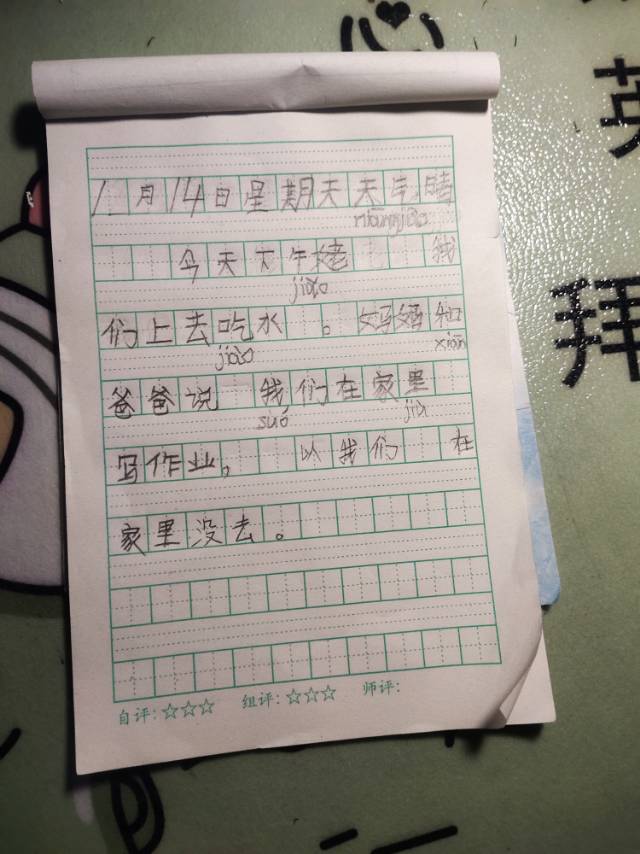 12月14日星期天天气晴
今天下午姥 我
jiào
们上去吃水 。妈妈和
jiào xiān
爸爸说 我们在家里
suǒ jiù
写作业。 以我们 在
家里没去。
自评:☆☆☆ 组评:☆☆☆ 师评:
英
拜